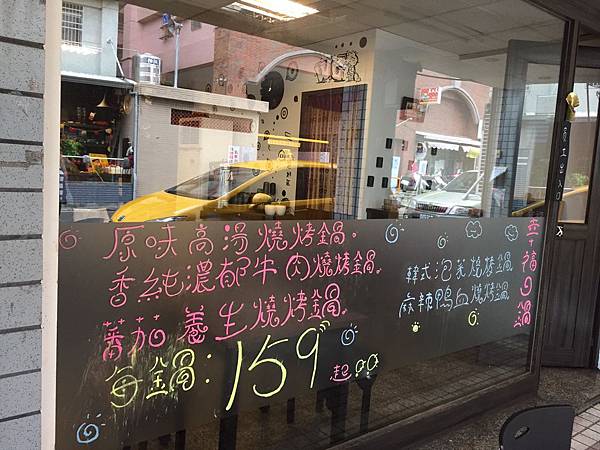 原味高湯燒烤鍋。
香純濃郁牛肉燒烤鍋。
蕃茄養生燒烤鍋。
每鍋:159元起
韓式泡菜燒烤鍋
麻辣鴨血燒烤鍋
幸福回鍋